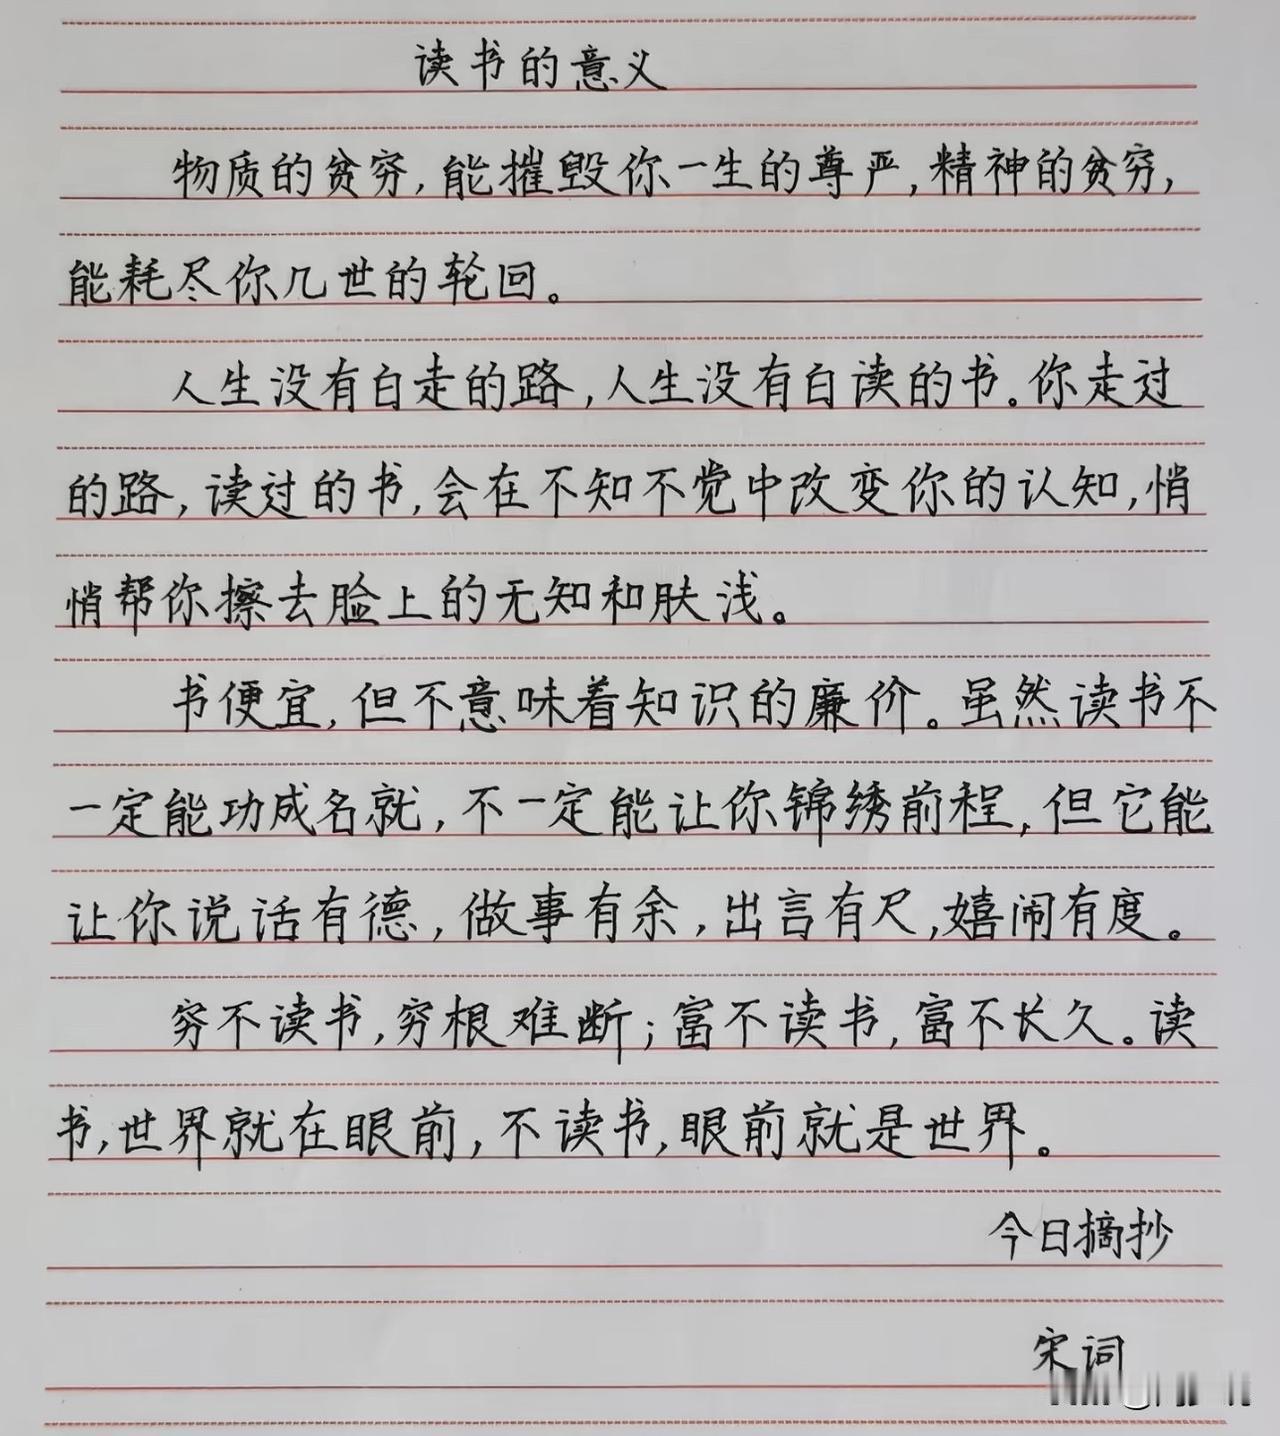 读书的意义
物质的贫穷，能摧毁你一生的尊严，精神的贫穷，
能耗尽你几世的轮回。
人生没有白走的路，人生没有白读的书。你走过
的路，读过的书，会在不知不觉中改变你的认知，悄
悄帮你擦去脸上的无知和肤浅。
书便宜，但不意味着知识的廉价。虽然读书不
一定能功成名就，不一定能让你锦绣前程，但它能
让你说话有德，做事有余，出言有尺，嬉闹有度。
穷不读书，穷根难断；富不读书，富不长久。读
书，世界就在眼前，不读书，眼前就是世界。
今日摘抄
宋词